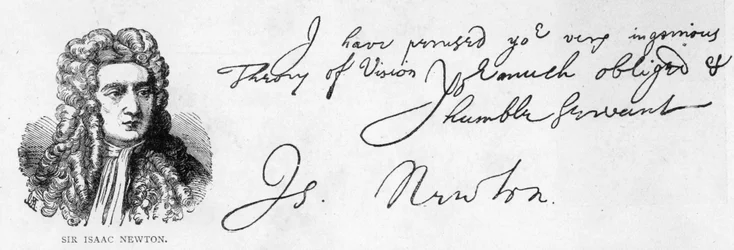 I have perused yoʳ very ingenious
Theory of Vision Yoʳ much obliged &
humble Servant
Is. Newton.
SIR ISAAC NEWTON.